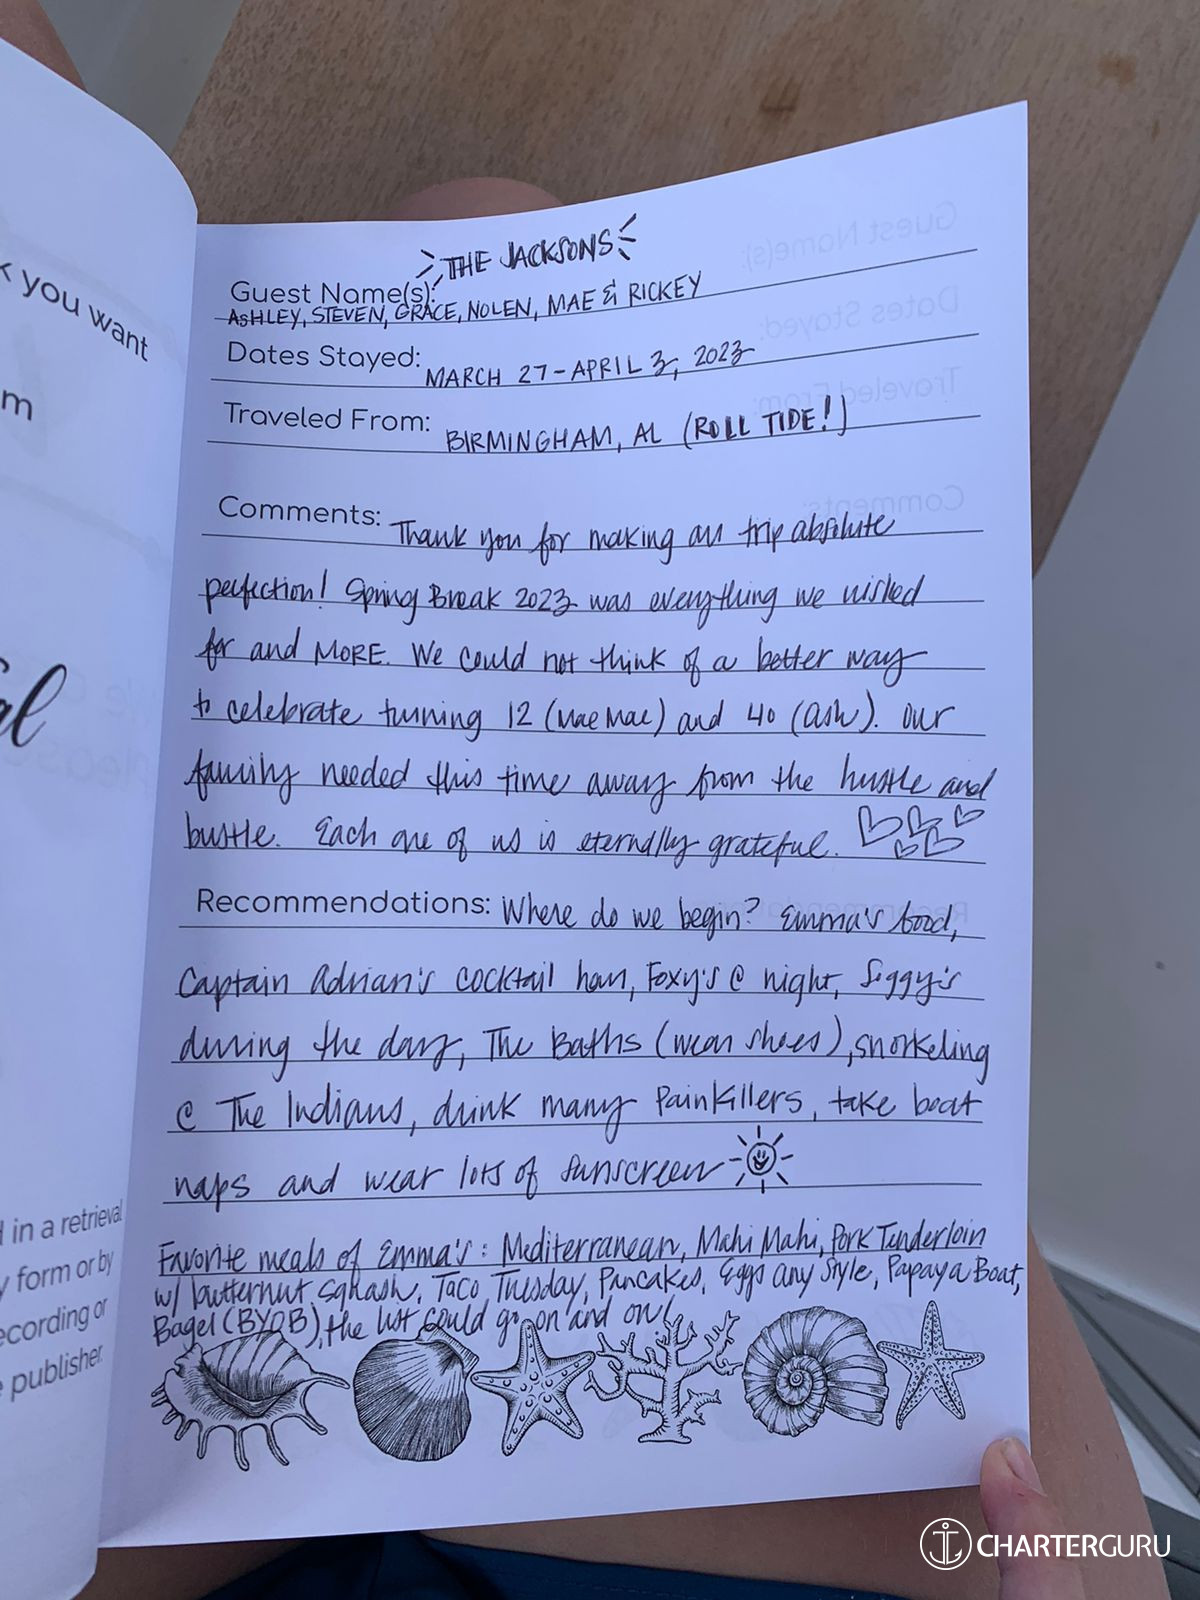 THE JACKSONS
Guest Name(s):
ASHLEY, STEVEN, GRACE, NOLEN, MAE & RICKEY
Dates Stayed: MARCH 27-APRIL 3, 2023
Traveled From: BIRMINGHAM, AL (ROLL TIDE!)
Comments: Thank you for making our trip absolute
perfection! Spring Break 2023 was everything we wished
for and MORE. We could not think of a better way
to celebrate turning 12 (Mae Mae) and 40 (Ash). Our
family needed this time away from the hustle and
bustle. Each one of us is eternally grateful.
Recommendations: Where do we begin? Emma's food,
Captain Adrian's cocktail hour, Foxy's @ night, Siggy's
during the day, The Baths (wear shoes), snorkeling
@ The Indians, drink many Painkillers, take boat
naps and wear lots of sunscreen
Favorite meals of Emma's: Mediterranean, Mahi Mahi, Pork Tenderloin
w/ butternut squash, Taco Tuesday, Pancakes, Eggs any Style, Papaya Boat,
Bagel (BYOB), the list could go on and on!
you want
m
al
in a retrieval
form or by
ecording or
publisher.
CHARTERGURU